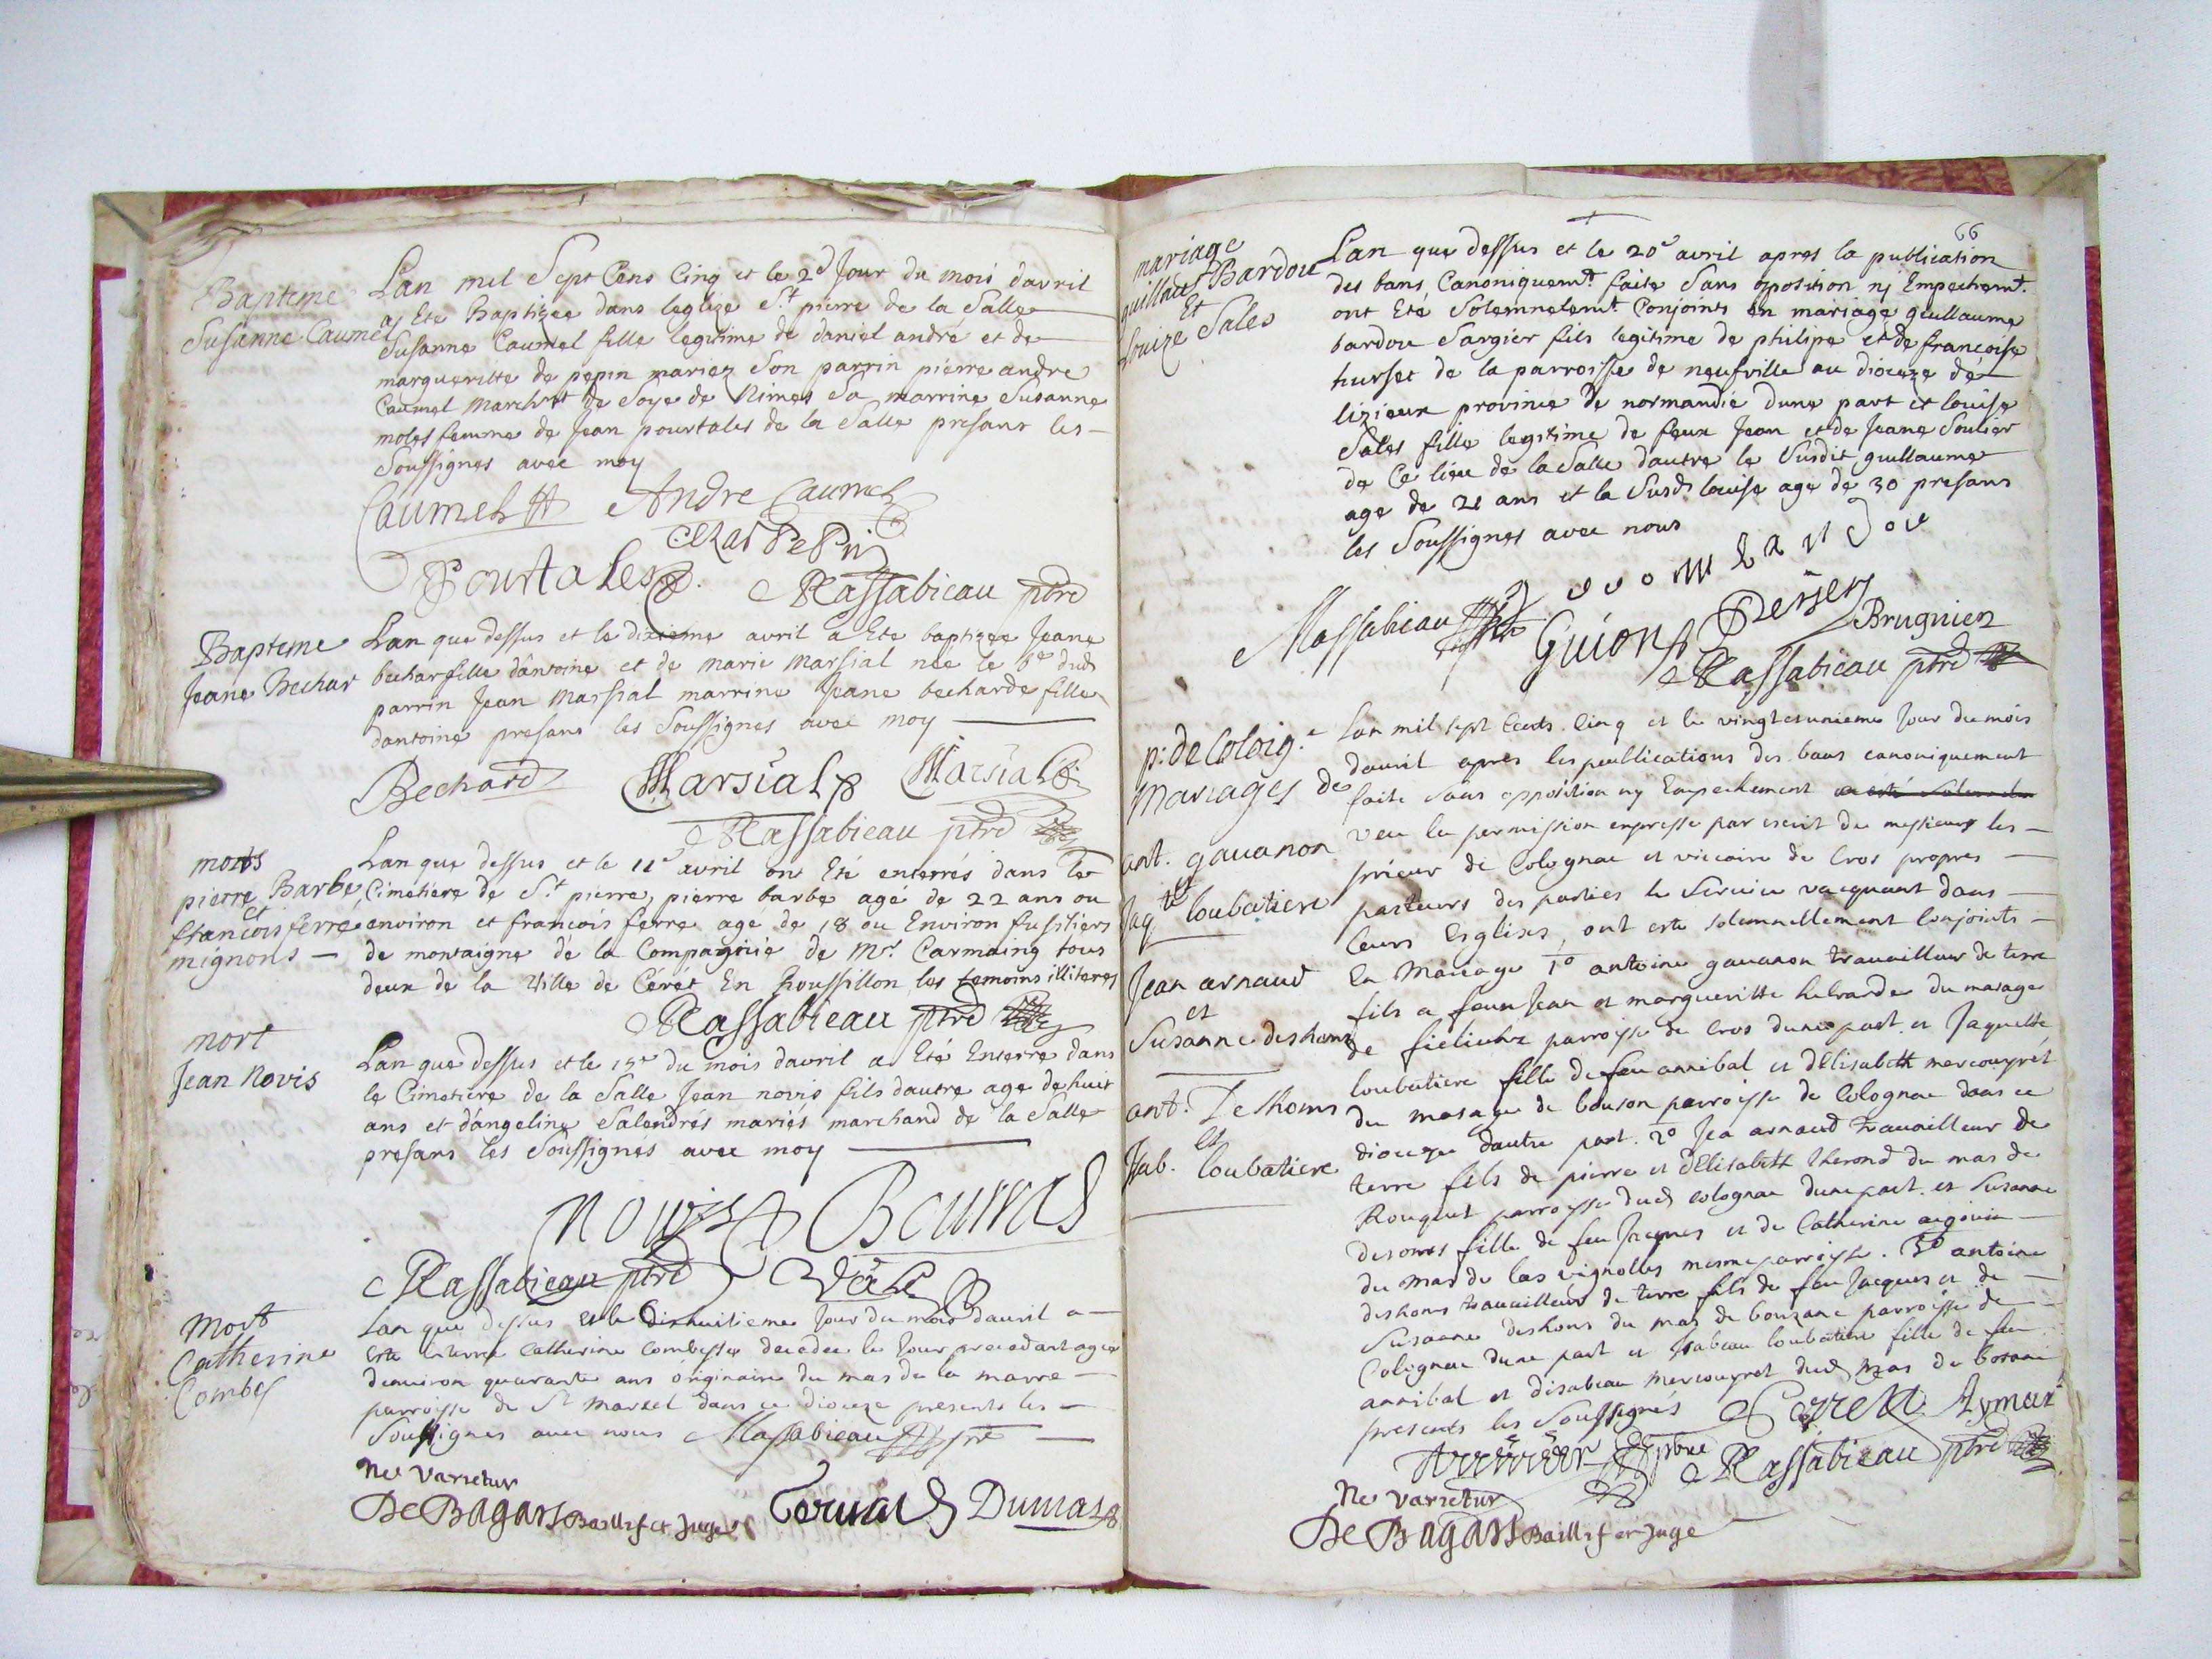 Bapteme
Susanne Caumel
Lan mil Sept Cens Cinq et le 2d Jour du mois davril
a Ete Baptizée dans leglize St pierre de la Salle
Susanne Caumel fille legitime de daniel andré et de
margueritte de pepin mariez Son parrin pierre andre
Caumel marchnt de Soye de Nimes Sa marrine Susanne
moles femme de Jean pourtales de la Salle presans les
Soussignes avec moy
Caumel Andre Caumel
Pepin
Pourtales Massabieau ptre
Bapteme
Jeane Bechar
Lan que dessus et le dixieme avril a Ete baptizee Jeane
bechar fille dantoine et de marie marsial née le 6e dud
parrin Jean marsial marrine Jeane becharde fille
dantoine presans les Soussignes avec moy
Bechard Marsial Marsial
Massabieau ptre
morts
pierre Barbe
et
francois ferre
mignons
Lan que dessus et le 11e avril ont Eté enterrés dans le
Cimetiere de St pierre, pierre barbe agé de 22 ans ou
environ et francois ferre agé de 18 ou Environ fusiliers
de montaigne de la Compagnie de Mr Carmaing tous
deux de la Ville de Cérét En Roussillon les temoins illiteres
Massabieau ptre
mort
Jean Novis
Lan que dessus et le 15e du mois davril a Eté Enterre dans
le Cimetiere de la Salle Jean novis fils dautre age de huit
ans et d'angeline Salendrés mariés marchand de la Salle
presans les Soussignés avec moy
Nouis Bourras
Massabieau ptre
Mort
Catherine
Combes
Lan que dessus et le Dixhuitieme Jour du mois davril a
este enterree Catherine Combesse decedee le Jour precedant agee
denviron quarante ans originaire du mas de la marre
parroisse de St Marsel dans ce dioceze presents les
Soussignes avec nous Massabieau ptre
Ne Varietur
De Bagars Baillif et Juge Dumas
66
mariage
guillaume Bardou
Et
Louize Sales
Lan que dessus et le 20e avril apres la publication
des bans Canoniquemt faite Sans oposition nj Empechemt
ont Eté Solemnelemt Conjoints en mariage guillaume
bardou Sargier fils legitime de philipe et de francoise
hurset de la parroisse de neufville au dioceze de
lizieux province de normandie dune part et louise
Sales fille legitime de feux Jean et de Jeane Soulier
de Ce lieu de la Salle dautre le Susdit guillaume
age de 21 ans et la Susde louise age de 30 presans
les Soussignes avec nous
Massabieau Guion Perier Brugnier
Massabieau ptre
p: de Cologe
Mariages de
ant. gauanon
et
Jaqte loubatiere
Jean arnaud
et
Susanne deshons
ant. Deshons
et
Isab. loubatiere
Lan mil sept Cents Cinq et le vingtetunieme Jour du mois
davril apres les publications des bans canoniquement
faite sans opposition ny Empechement a esté Solemnelen
veu la permission expresse par escrit de messieurs les
prieur de Colognac et viccaire de Cros propres
pasteurs des parties le Service vacquant dans
leurs Esglises, ont esté solemnellement Conjoints
En Mariage 1o antoine gauanon travailleur de terre
fils a feux Jean et margueritte helrarde du masage
de parroisse de Cros dune part et Jaquette
loubatiere fille de feu annibal et dElisabeth marcouyrét
du masage de bouson parroisse de Colognac dans ce
dioceze dautre part. 2o Jea arnaud travailleur de
terre fils de pierre et dElisabeth therond du mas de
Rouquet parroisse dud colognac dune part et Susanne
desons fille de feu Jacques et de Catherine
du mas de las vignolles mesme parroisse. 3o antoine
deshons travailleur de terre fils de feu Jacques et de
Susanne deshons du mas de bouzane parroisse de
Colognac dune part et Isabeau loubatiere fille de feu
annibal et disabeau mercouyret dud mas de bosane
presents les Soussignés Aymar
ptre Massabieau ptre
Ne varietur
De Bagars Baillif et Juge